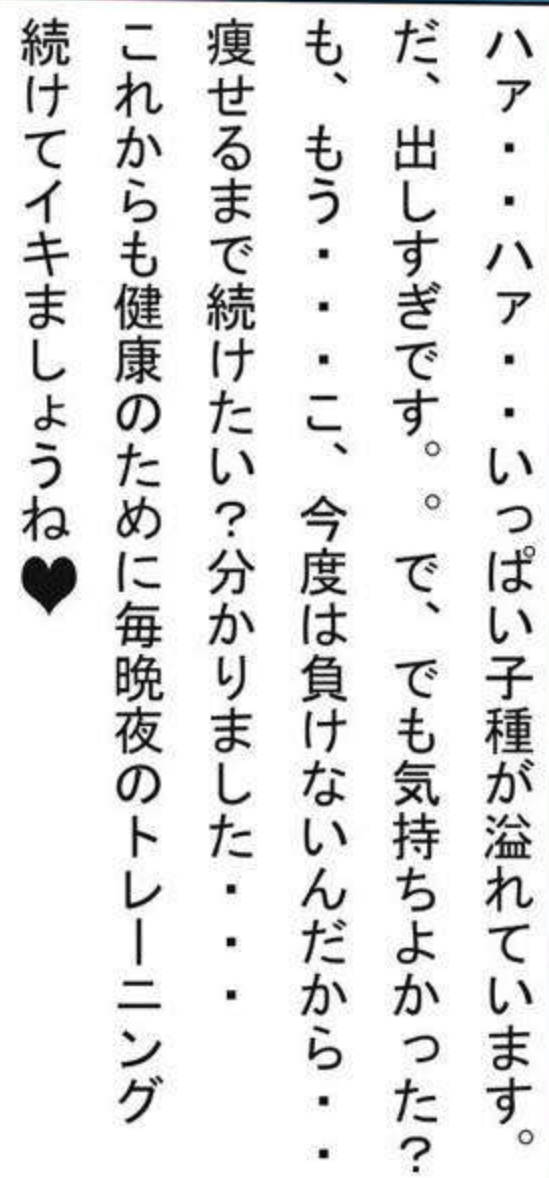 ハァ・・ハァ・・いっぱい子種が溢れています。
だ、出しすぎです。。で、でも気持ちよかった?
も、もう・・・こ、今度は負けないんだから・・
痩せるまで続けたい?分かりました・・・
これからも健康のために毎晩夜のトレーニング
続けてイキましょうね♥